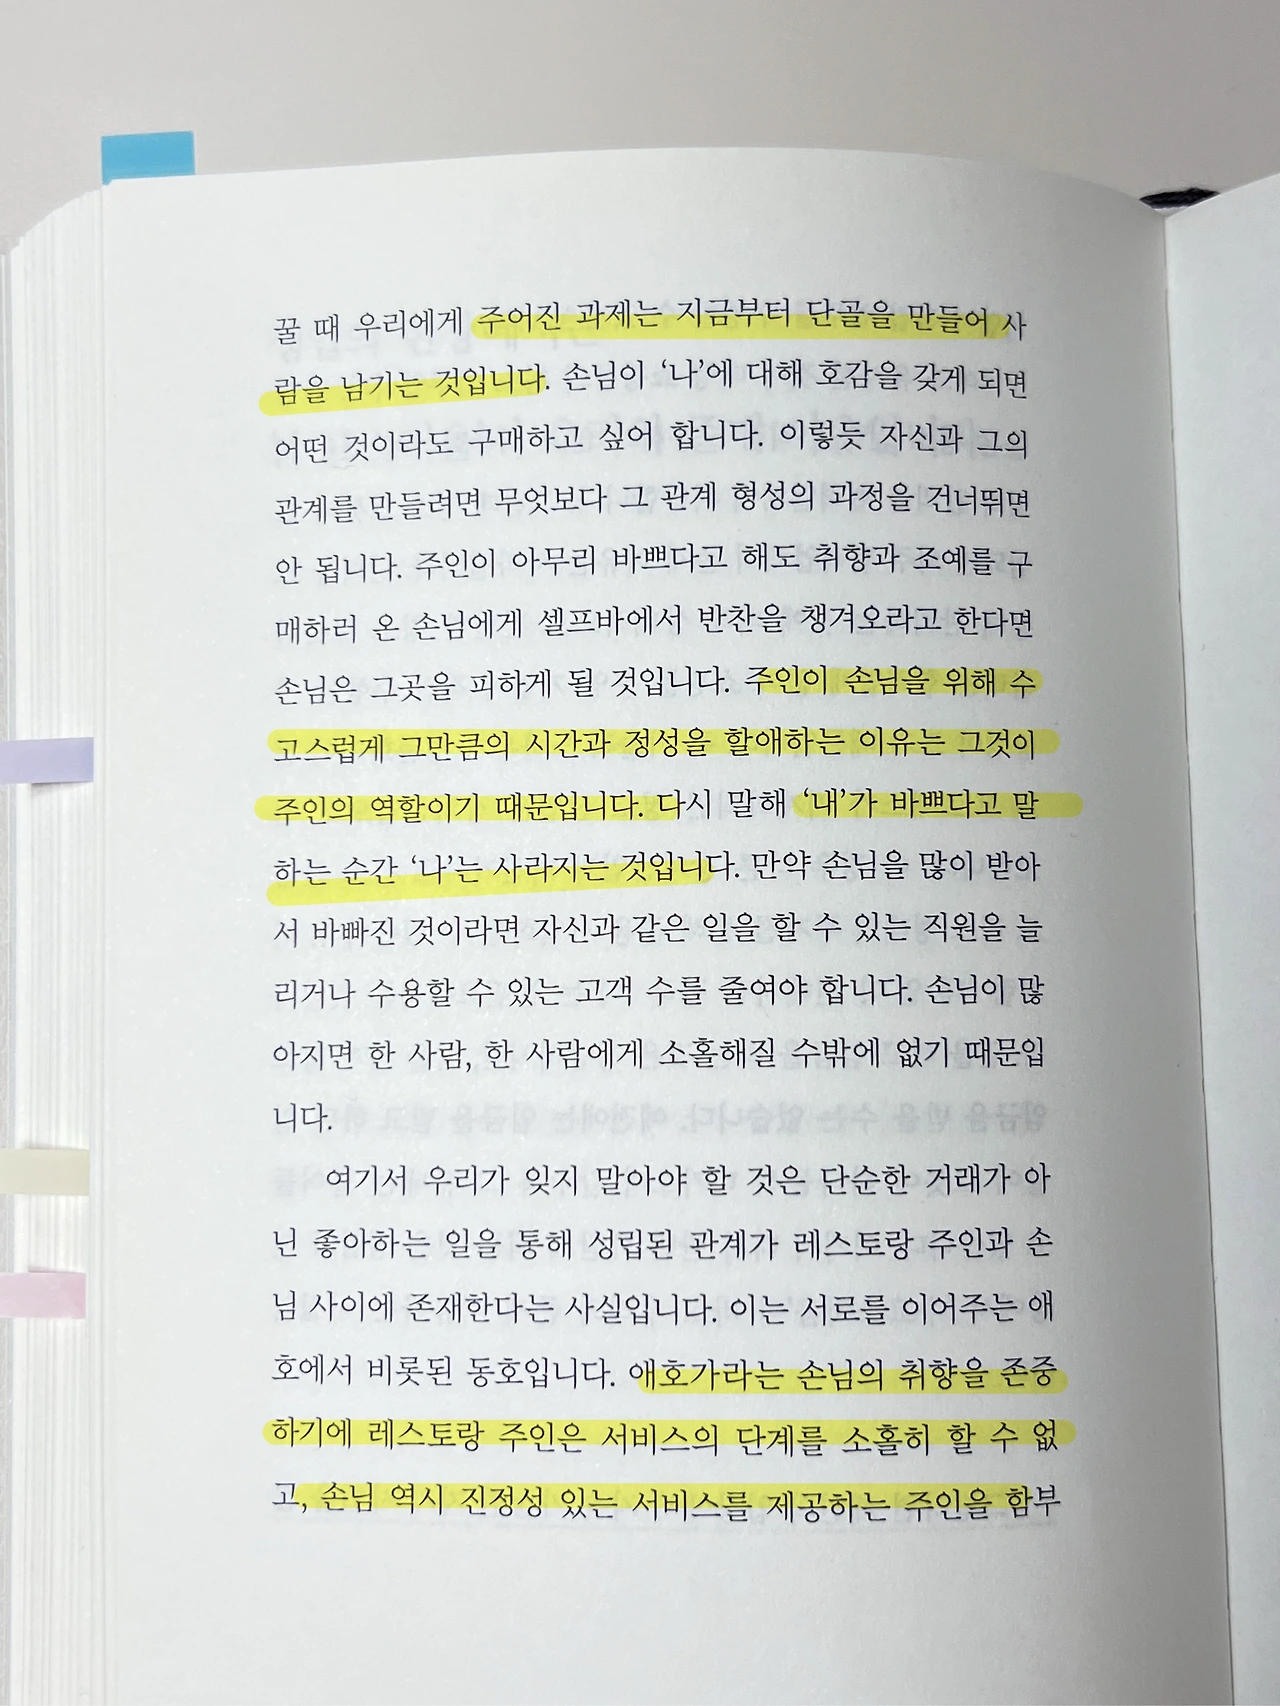 꿀 때 우리에게 주어진 과제는 지금부터 단골을 만들어 사
람을 남기는 것입니다. 손님이 ‘나’에 대해 호감을 갖게 되면
어떤 것이라도 구매하고 싶어 합니다. 이렇듯 자신과 그의
관계를 만들려면 무엇보다 그 관계 형성의 과정을 건너뛰면
안 됩니다. 주인이 아무리 바쁘다고 해도 취향과 조예를 구
매하러 온 손님에게 셀프바에서 반찬을 챙겨오라고 한다면
손님은 그곳을 피하게 될 것입니다. 주인이 손님을 위해 수
고스럽게 그만큼의 시간과 정성을 할애하는 이유는 그것이
주인의 역할이기 때문입니다. 다시 말해 ‘내’가 바쁘다고 말
하는 순간 ‘나’는 사라지는 것입니다. 만약 손님을 많이 받아
서 바빠진 것이라면 자신과 같은 일을 할 수 있는 직원을 늘
리거나 수용할 수 있는 고객 수를 줄여야 합니다. 손님이 많
아지면 한 사람, 한 사람에게 소홀해질 수밖에 없기 때문입
니다.
여기서 우리가 잊지 말아야 할 것은 단순한 거래가 아
닌 좋아하는 일을 통해 성립된 관계가 레스토랑 주인과 손
님 사이에 존재한다는 사실입니다. 이는 서로를 이어주는 애
호에서 비롯된 동호입니다. 애호가라는 손님의 취향을 존중
하기에 레스토랑 주인은 서비스의 단계를 소홀히 할 수 없
고, 손님 역시 진정성 있는 서비스를 제공하는 주인을 함부